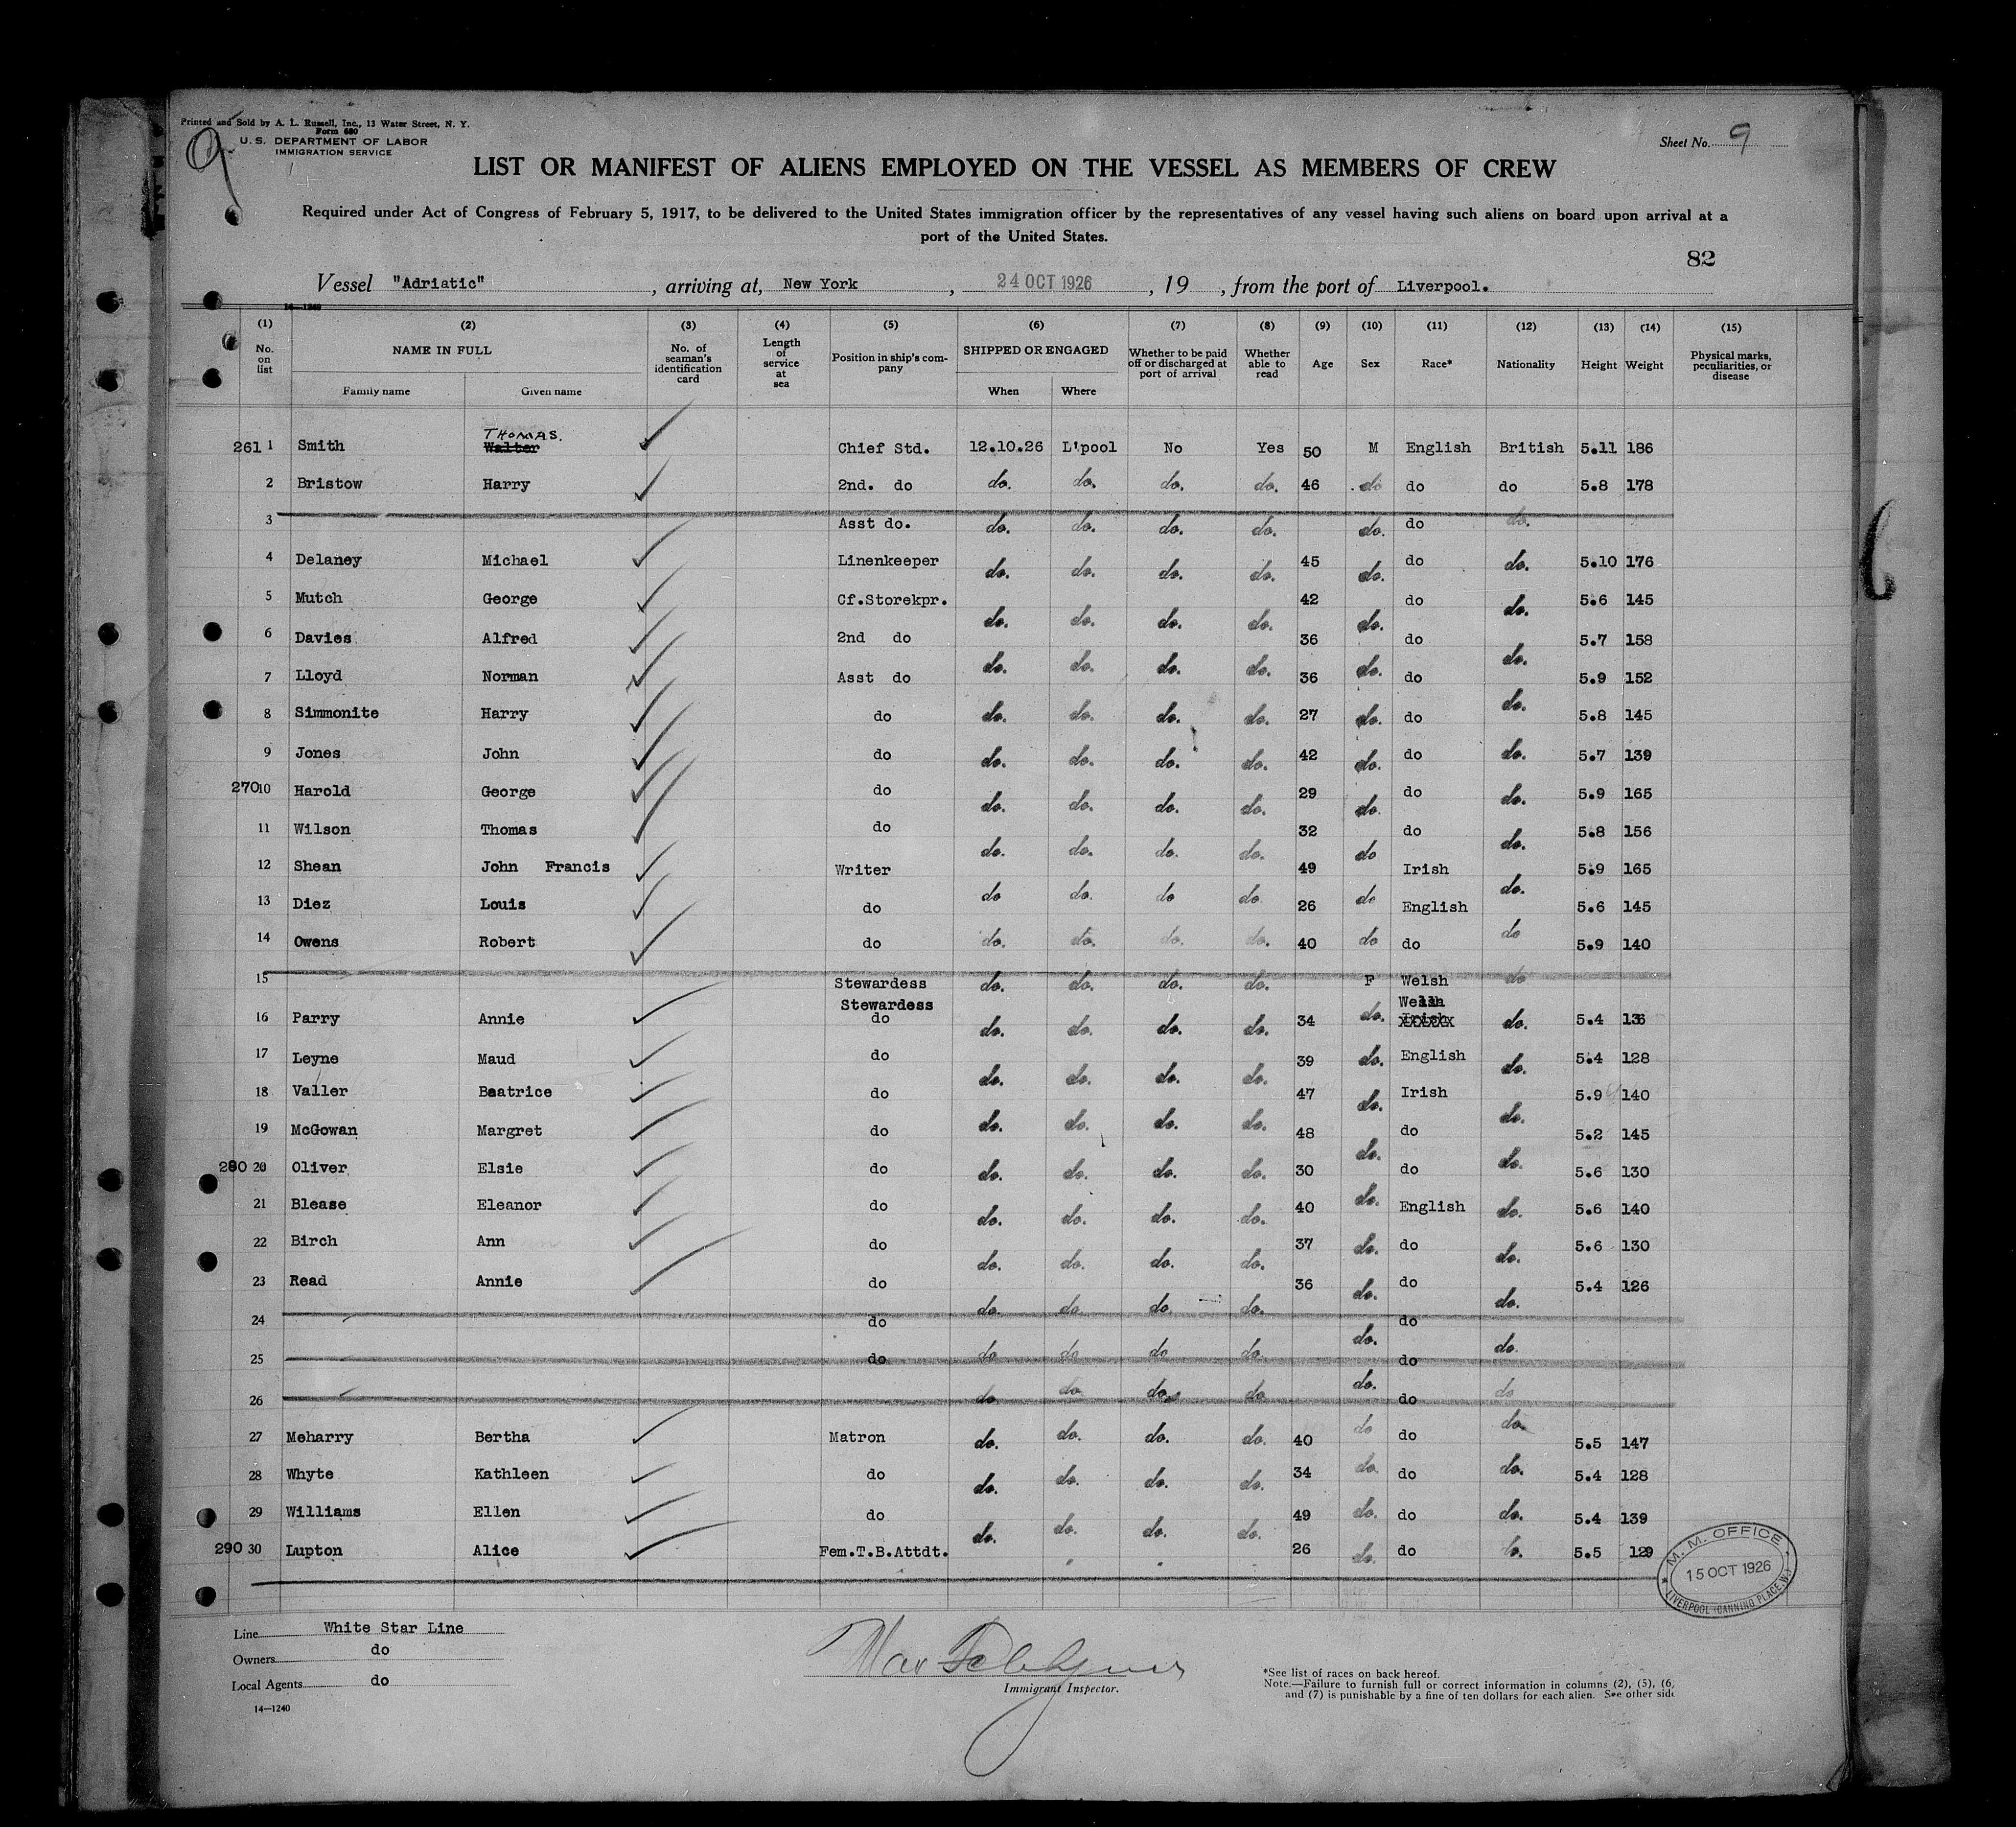 Printed and Sold by A. L. Russell, Inc., 13 Water Street, N. Y.
Form 680
U. S. DEPARTMENT OF LABOR
IMMIGRATION SERVICE
9
Sheet No. 9
LIST OR MANIFEST OF ALIENS EMPLOYED ON THE VESSEL AS MEMBERS OF CREW
Required under Act of Congress of February 5, 1917, to be delivered to the United States immigration officer by the representatives of any vessel having such aliens on board upon arrival at a
port of the United States.
82
Vessel "Adriatic", arriving at, New York, 24 OCT 1926, 19 , from the port of Liverpool.
14—1240
(1) (2) (3) (4) (5) (6) (7) (8) (9) (10) (11) (12) (13) (14) (15)
No. on list NAME IN FULL No. of seaman's identification card Length of service at sea Position in ship's company SHIPPED OR ENGAGED Whether to be paid off or discharged at port of arrival Whether able to read Age Sex Race* Nationality Height Weight Physical marks, peculiarities, or disease
Family name Given name When Where
THOMAS.
261 1 Smith Walter Chief Std. 12.10.26 L'pool No Yes 50 M English British 5.11 186
2 Bristow Harry 2nd. do do. do. do. do. 46 do do do 5.8 178
3 Asst do. do. do. do. do. do. do do.
4 Delaney Michael Linenkeeper do. do. do. do. 45 do. do do. 5.10 176
5 Mutch George Cf.Storekpr. do. do. do. do. 42 do. do do. 5.6 145
6 Davies Alfred 2nd do do. do. do. do. 36 do. do do. 5.7 158
7 Lloyd Norman Asst do do. do. do. do. 36 do. do do. 5.9 152
8 Simmonite Harry do do. do. do. do. 27 do. do do. 5.8 145
9 Jones John do do. do. do. do. 42 do. do do. 5.7 139
270 10 Harold George do do. do. do. do. 29 do. do do. 5.9 165
11 Wilson Thomas do do. do. do. do. 32 do do do. 5.8 156
12 Shean John Francis Writer do do. do do. 49 do Irish do. 5.9 165
13 Diez Louis do 26 English 5.6 145
14 Owens Robert do do. do. do. do. 40 do do do 5.9 140
15 Stewardess do. do. do. do. F Welsh do
Stewardess Welsh
16 Parry Annie do do. do. do. do. 34 do. Irish do. 5.4 136
17 Leyne Maud do do. do. do. do. 39 do. English do. 5.4 128
18 Valler Beatrice do do. do. do. do. 47 do. Irish do. 5.9 140
19 McGowan Margret do 48 do. do 5.2 145
280 20 Oliver Elsie do do. do. do. do. 30 do do. 5.6 130
21 Blease Eleanor do do. do. do. do. 40 do. English do. 5.6 140
22 Birch Ann do do. do. do. do. 37 do. do do. 5.6 130
23 Read Annie do do. do. do. do. 36 do. do do. 5.4 126
24 do do. do. do. do. do. do do.
25 do do do do do. do. do do
26 do do. do. do do do
27 Meharry Bertha Matron do. do. do. do. 40 do do do. 5.5 147
28 Whyte Kathleen do do. do. do. do. 34 do. do do. 5.4 128
29 Williams Ellen do do. do. do. do. 49 do. do do. 5.4 139
290 30 Lupton Alice Fem.T.B.Attdt. 26 do. do do. 5.5 129
M. M. OFFICE
15 OCT 1926
LIVERPOOL (CANNING PLACE.W.)
Line White Star Line
Owners do
Local Agents do
14—1240
Immigrant Inspector.
*See list of races on back hereof.
Note.—Failure to furnish full or correct information in columns (2), (5), (6)
and (7) is punishable by a fine of ten dollars for each alien. See other side